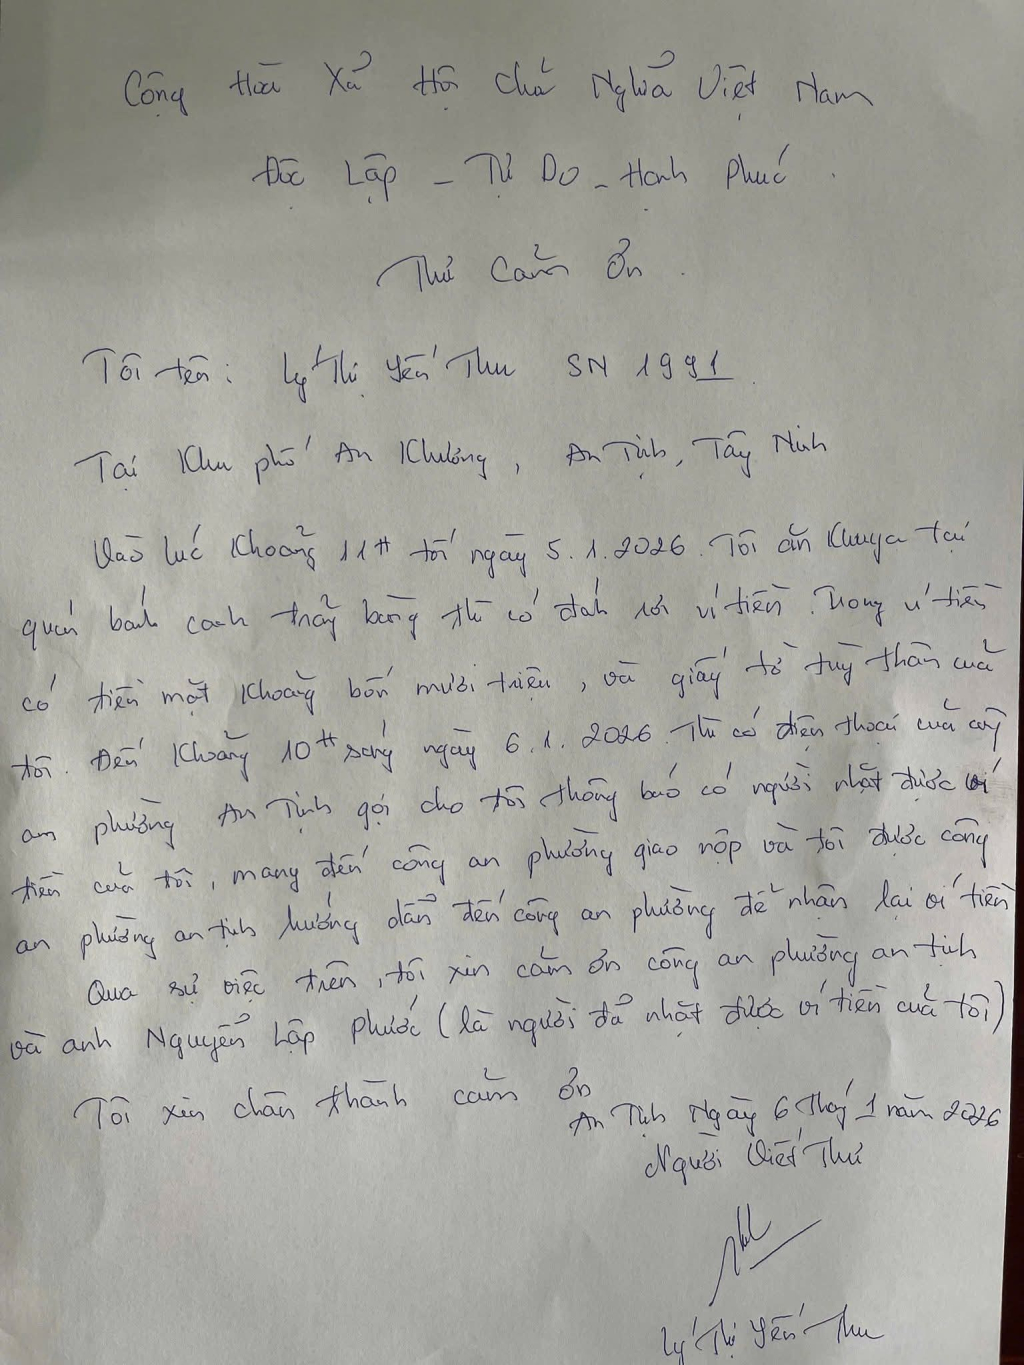 Cộng Hoà Xả Hội Chủ Nghĩa Việt Nam
Độc Lập - Tự Do - Hạnh Phúc.
Thư Cảm Ơn.
Tôi tên: Lý Thị Yến Thu SN 1991.
Tại Khu phố An Khương, An Tịnh, Tây Ninh
Vào lúc Khoảng 11H tối ngày 5.1.2026. Tôi ăn Khuya tại
quán bánh canh trảng bàng thì có đánh rơi ví tiền. Trong ví tiền
có tiền mặt Khoảng bốn mươi triệu, và giấy tờ tuỳ thân của
tôi. Đến Khoảng 10H sáng ngày 6.1.2026. Thì có điện thoại của công
an phường An Tịnh gọi cho tôi thông báo có người nhặt được ví
tiền của tôi, mang đến công an phường giao nộp và tôi được công
an phường an tịnh hướng dẩn đến công an phường để nhận lại ví tiền
Qua sự việc trên, tôi xin cảm ơn công an phường an tịnh
và anh Nguyễn Lập Phước (là người đả nhặt được ví tiền của tôi)
Tôi xin chân thành cảm ơn
An Tịnh Ngày 6 Tháng 1 năm 2026
Người Viết Thư
Lý Thị Yến Thu